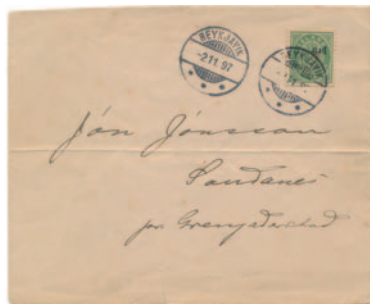 REYKJAVIK
-2.11.97
REYKJAVIK
Jón Jónsson
pr. Grenjaderstad